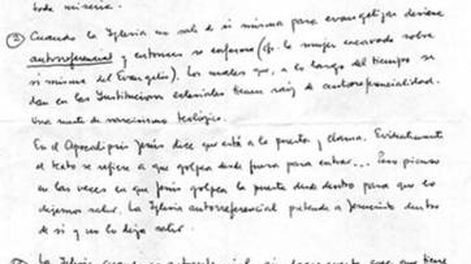 toda miseria.
② Cuando la Iglesia no sale de sí misma para evangelizar deviene
autorreferencial y entonces se enferma (cfr. la mujer encorvada sobre
sí misma del Evangelio). Los males que, a lo largo del tiempo se
dan en las Instituciones eclesiales tienen raíz de autorreferencialidad.
Una suerte de narcisismo teológico.
En el Apocalipsis Jesús dice que está a la puerta y llama. Evidentemente
el texto se refiere a que golpea desde fuera para entrar... Pero pienso
en las veces en que Jesús golpea la puerta desde dentro para que lo
dejemos salir. La Iglesia autorreferencial pretende a Jesucristo dentro
de sí y no lo deja salir.
La Iglesia cuando es autorreferencial